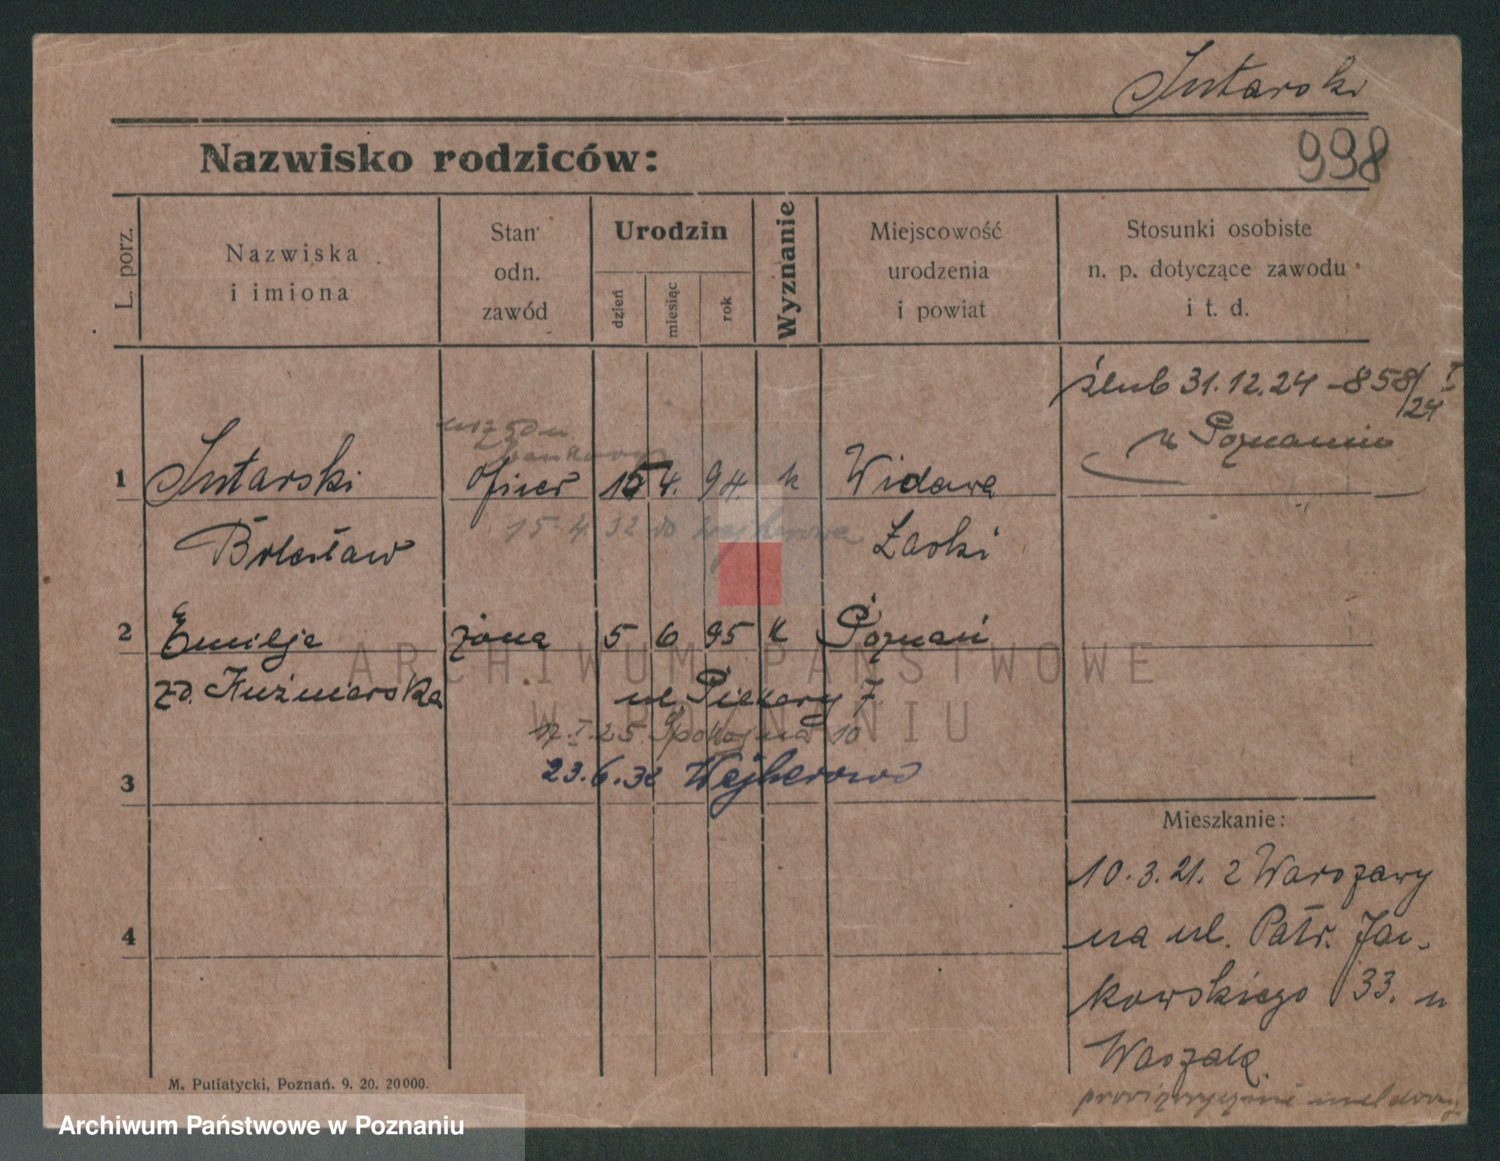 Sutarski
998
Nazwisko rodziców:
L. porz.
Nazwiska
i imiona
Stan
odn.
zawód
Urodzin
dzień
miesiąc
rok
Wyznanie
Miejscowość
urodzenia
i powiat
Stosunki osobiste
n. p. dotyczące zawodu
i t. d.
ślub 31.12.24 - 858/I
/24
w Poznaniu
1 Sutarski oficer 15 4. 94 k Widawa
15 4 32 do Wejherowa
Bolesław Łaski
2 Emilja żona 5 6 95 k Poznań
zd. Kuźnierska ul. Piekary 7
17.I.25. Spokojna 10
3 23.6.32 Wejherowo
4
Mieszkanie:
10.3.21. z Warszawy
na ul. Patr. Jac-
kowskiego 33. u
ARCHIWUM PAŃSTWOWE
W POZNANIU
M. Putiatycki, Poznań. 9. 20. 20000.
Archiwum Państwowe w Poznaniu